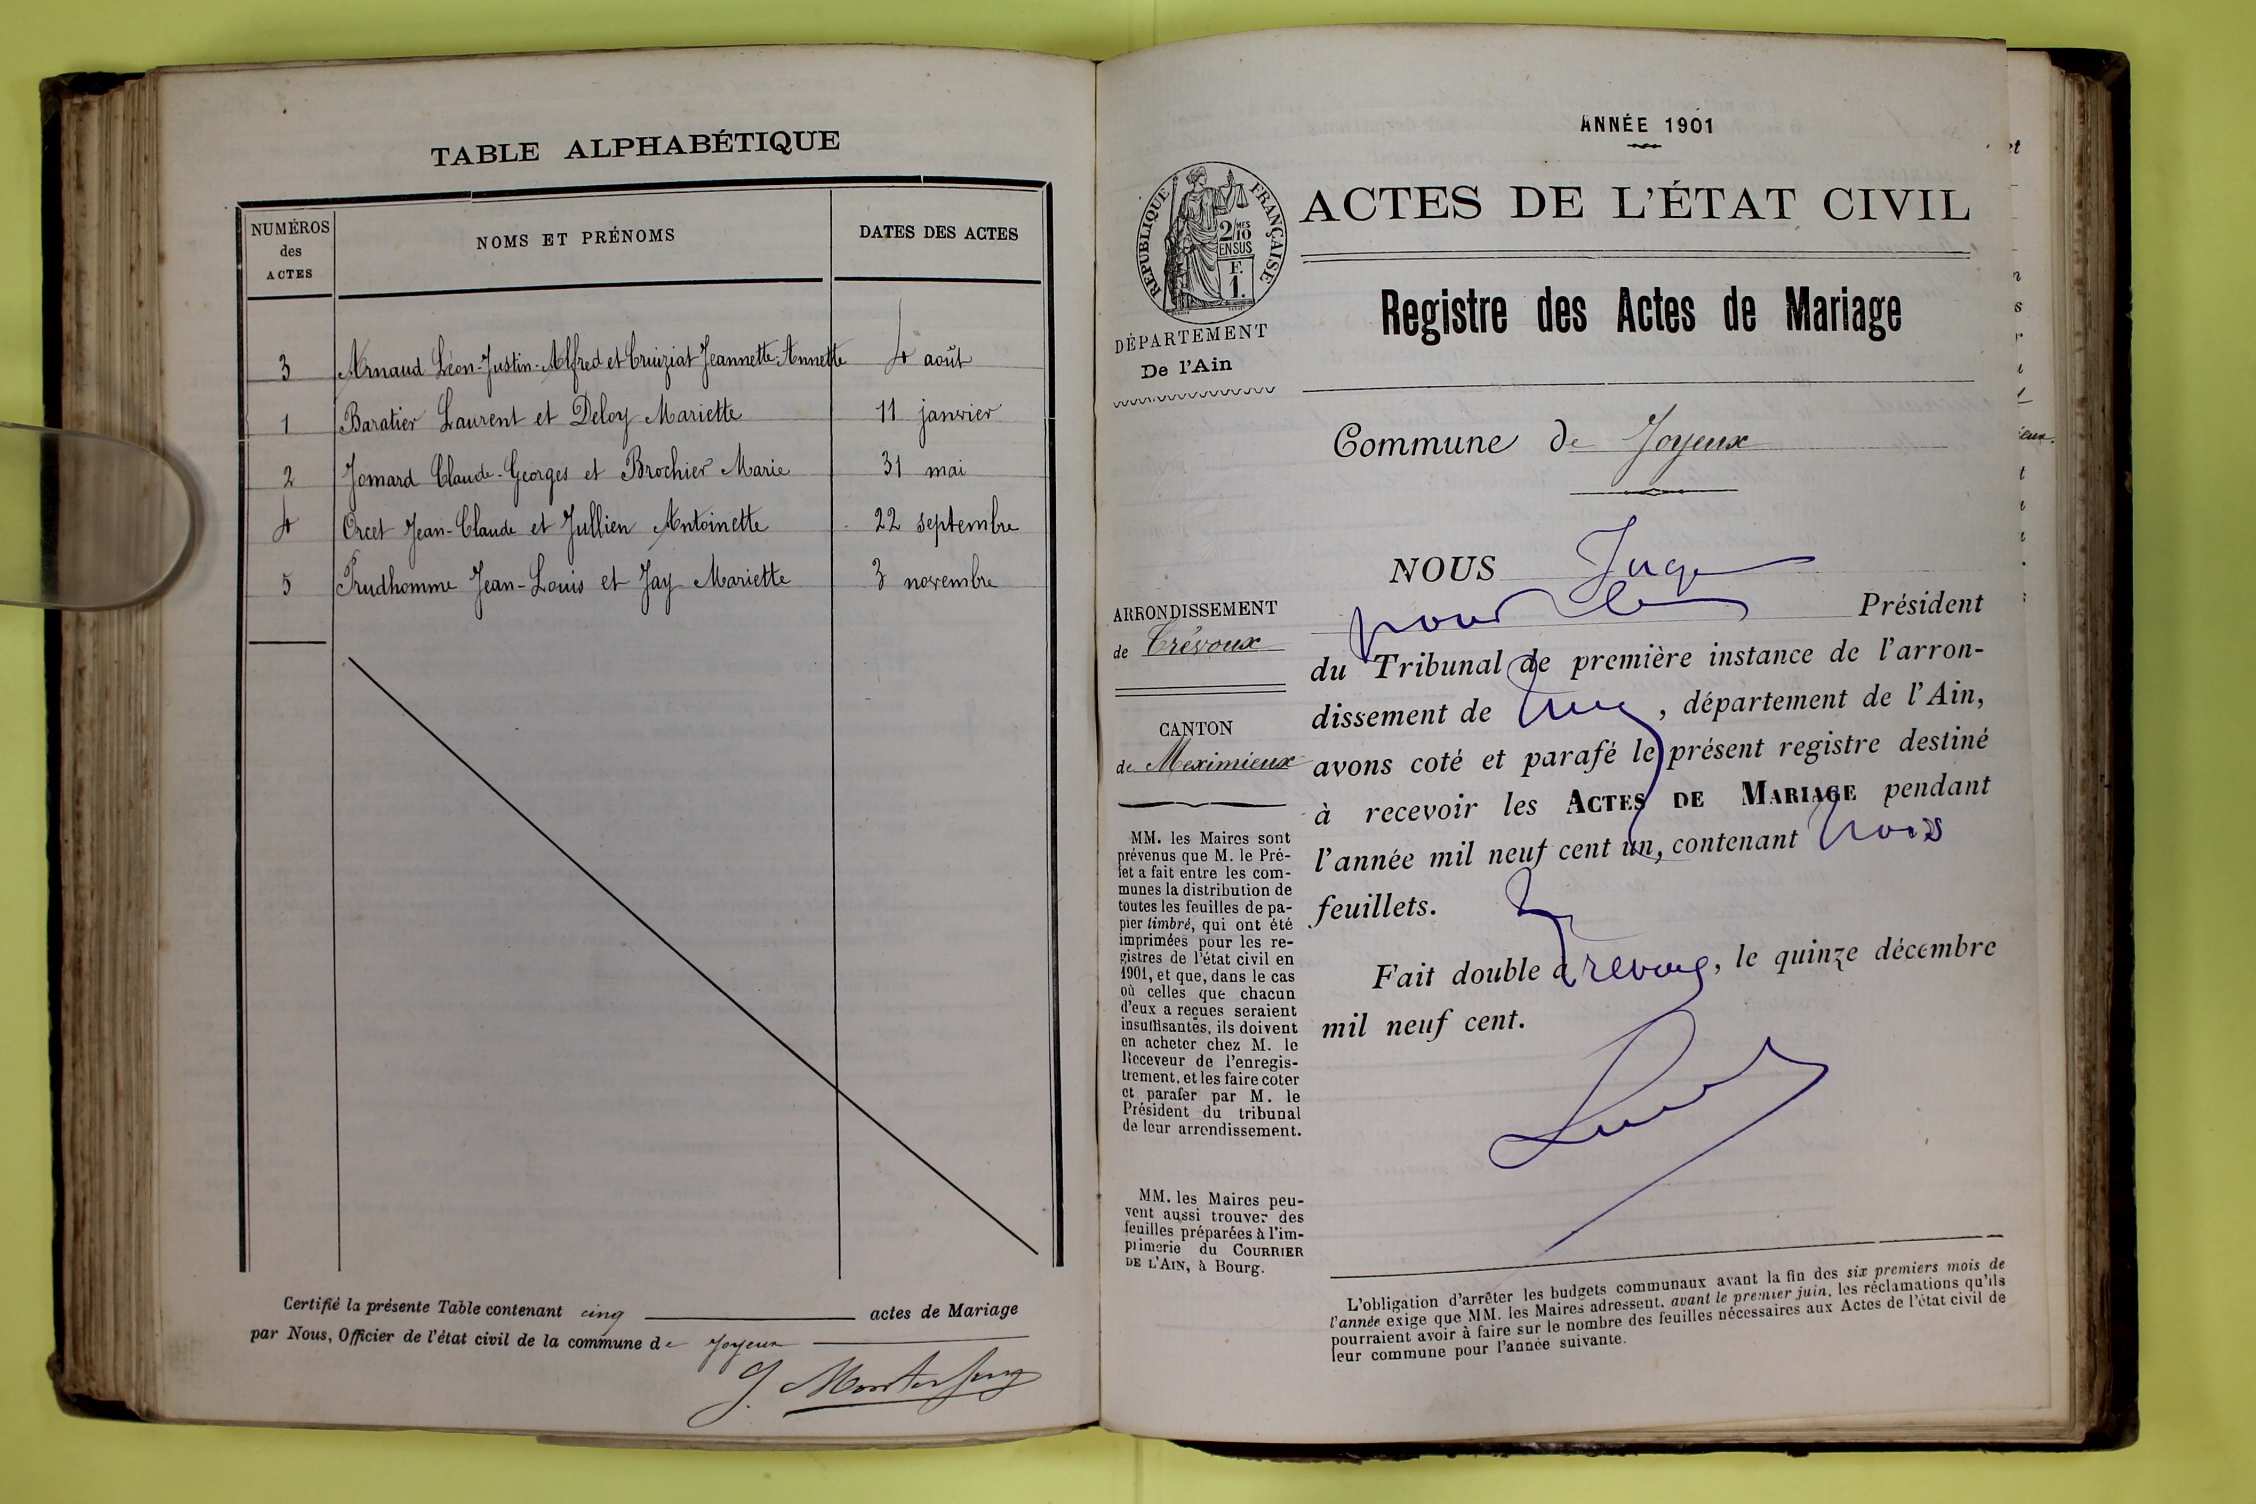 TABLE ALPHABÉTIQUE
NUMÉROS des ACTES
NOMS ET PRÉNOMS
DATES DES ACTES
3 Arnaud Léon-Justin-Alfred et Cruiziat Jeannette-Annette 4 août
1 Baratier Laurent et Deloy Mariette 11 janvier
2 Jomard Claude-Georges et Brochier Marie 31 mai
4 Orcet Jean-Claude et Jullien Antoinette 22 septembre
5 Prudhomme Jean-Louis et Jay Mariette 3 novembre
Certifié la présente Table contenant cinq actes de Mariage
par Nous, Officier de l'état civil de la commune de Joyeux
ANNÉE 1901
RÉPUBLIQUE FRANÇAISE
2/10 MES
EN SUS
F.
1.
DÉPARTEMENT
De l'Ain
ARRONDISSEMENT
de Trévoux
CANTON
de Meximieux
MM. les Maires sont
prévenus que M. le Pré-
fet a fait entre les com-
munes la distribution de
toutes les feuilles de pa-
pier timbré, qui ont été
imprimées pour les re-
gistres de l'état civil en
1901, et que, dans le cas
où celles que chacun
d'eux a reçues seraient
insuffisantes, ils doivent
en acheter chez M. le
Receveur de l'enregis-
trement, et les faire coter
et parafer par M. le
Président du tribunal
de leur arrondissement.
MM. les Maires peu-
vent aussi trouver des
feuilles préparées à l'im-
primerie du COURRIER
DE L'AIN, à Bourg.
ACTES DE L'ÉTAT CIVIL
Registre des Actes de Mariage
Commune de Joyeux
NOUS Juge
pour le Président
du Tribunal de première instance de l'arron-
dissement de , département de l'Ain,
avons coté et parafé le présent registre destiné
à recevoir les ACTES DE MARIAGE pendant
l'année mil neuf cent un, contenant trois
feuillets.
Fait double à Trévoux, le quinze décembre
mil neuf cent.
L'obligation d'arrêter les budgets communaux avant la fin des six premiers mois de
l'année exige que MM. les Maires adressent, avant le premier juin, les réclamations qu'ils
pourraient avoir à faire sur le nombre des feuilles nécessaires aux Actes de l'état civil de
leur commune pour l'année suivante.